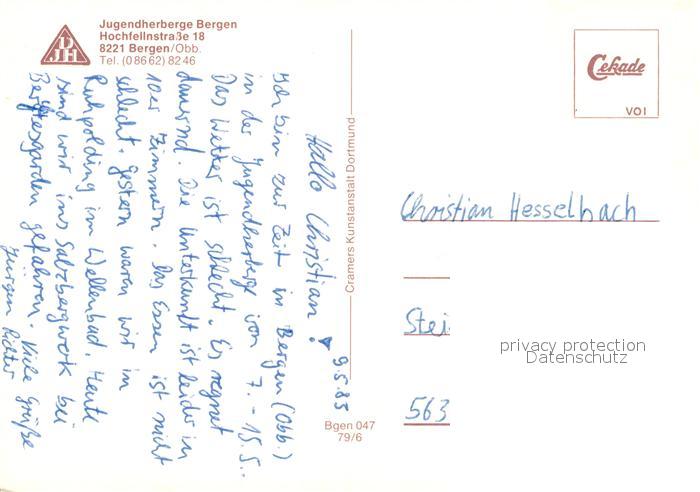 Jugendherberge Bergen
Hochfellnstraße 18
8221 Bergen/Obb.
Tel. (08662) 8246
DJH
Cekade
VOI
9.5.85
Hallo Christian!
Ich bin zur Zeit in Bergen (Obb.)
in der Jugendherberge von 7.-15.5..
Das Wetter ist schlecht. Es regnet
dauernd. Die Unterkunft ist leider in
10er Zimmern. Das Essen ist nicht
schlecht. Gestern waren wir in
Ruhpolding im Wellenbad. Heute
sind wir ins Salzbergwerk bei
Berchtesgarden gefahren. Viele Grüße
Jürgen Richter
Cramers Kunstanstalt Dortmund
Bgen 047
79/6
Christian Hesselbach
Stei
563
privacy protection
Datenschutz